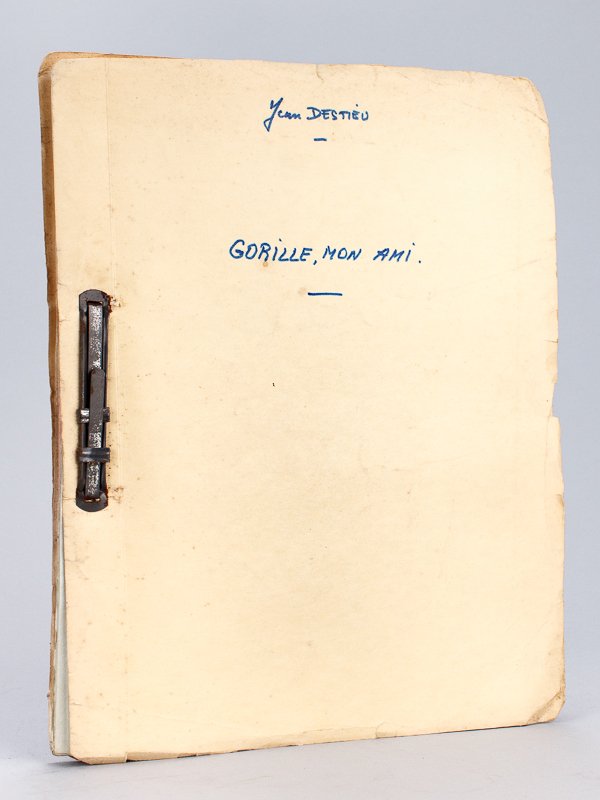 Jean DESTIEU
GORILLE, MON AMI.